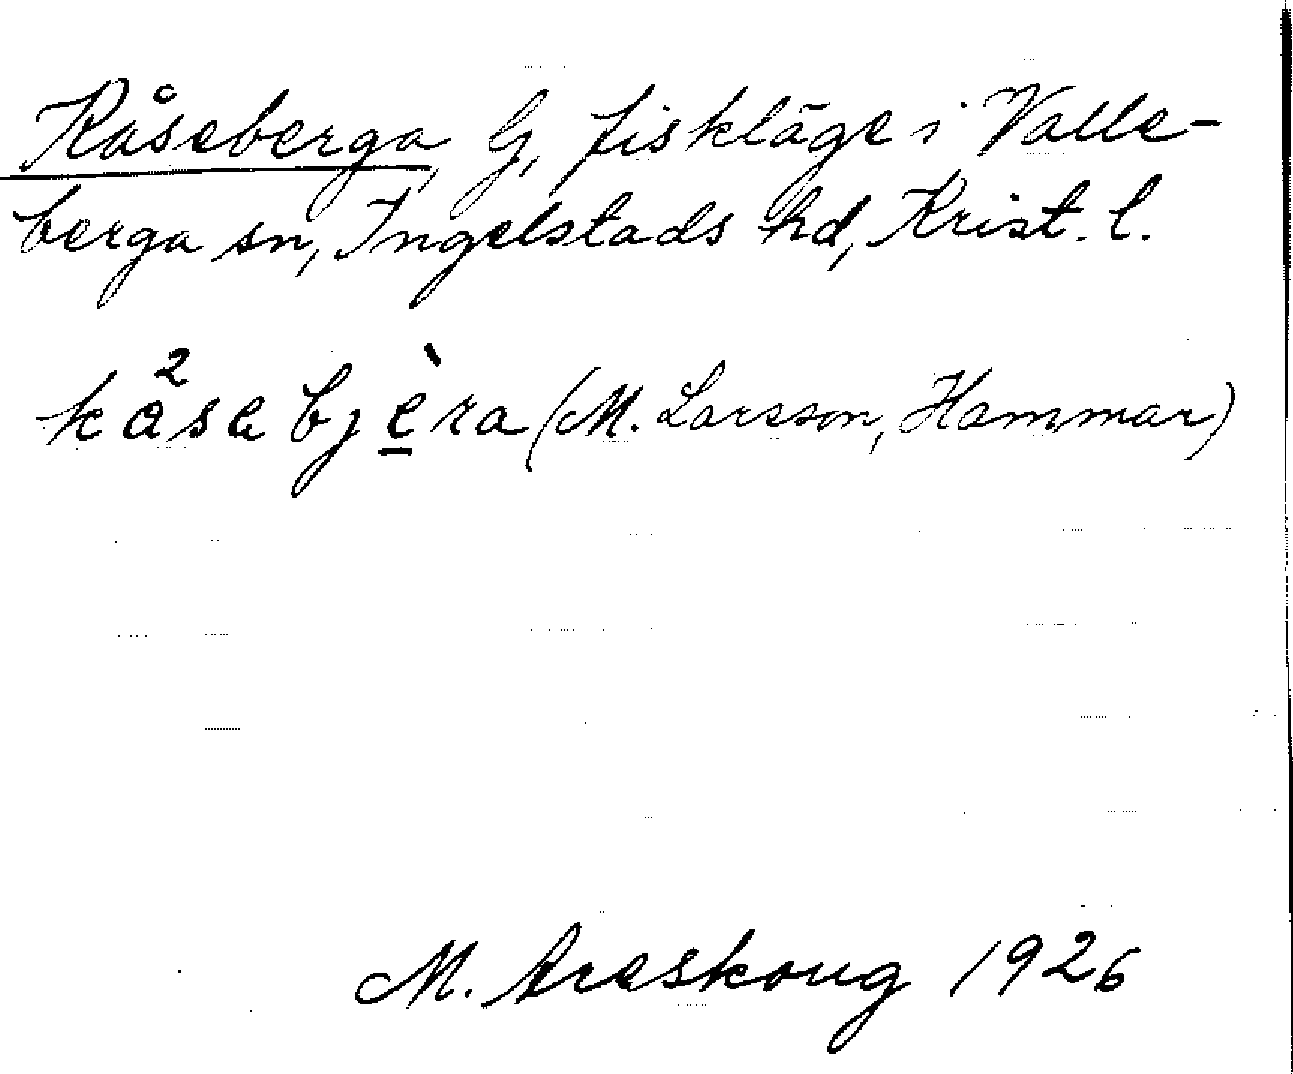 Kåseberga G, fiskläge i Valle-
berga sn, Ingelstads hd, Krist. l.
kå²sabjèra (M. Larsson, Hammar)
M. Areskoug 1926